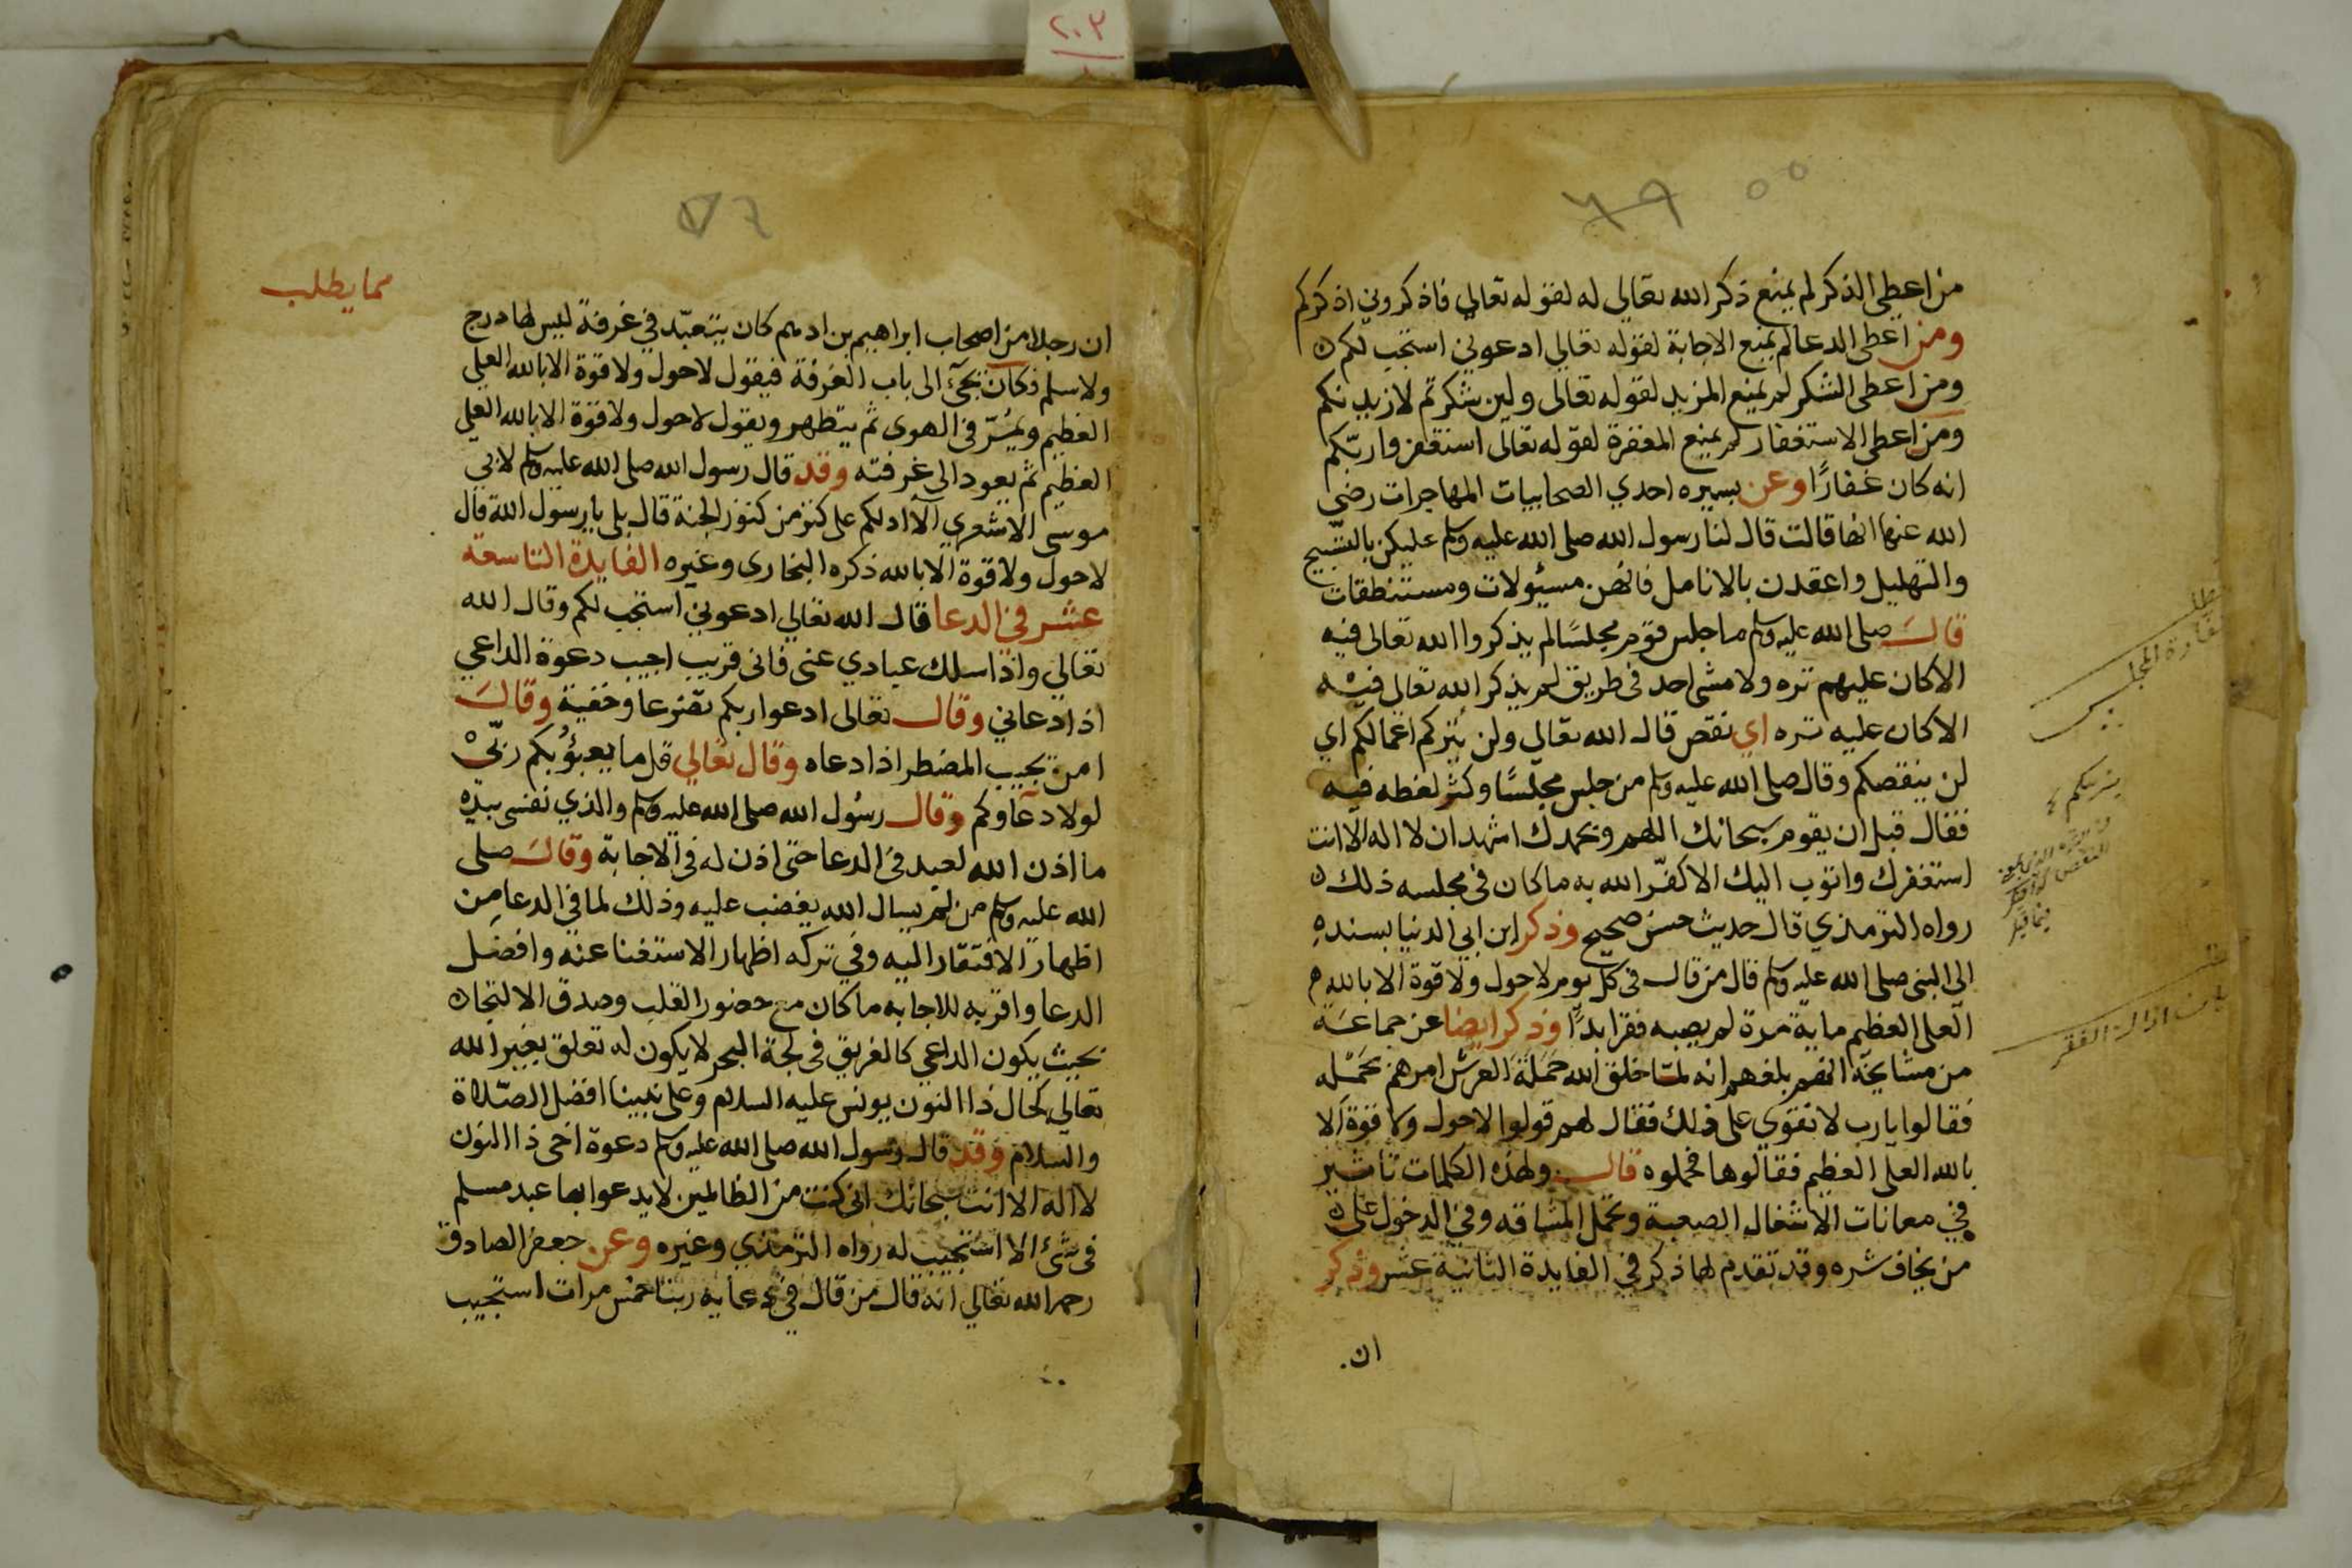 ٢٠٣
٥٥
من اعطى الذكر لم يمنع ذكر الله تعالي له لقوله تعالي فاذكروني اذكركم
ومن اعطى الدعا لم يمنع الاجابة لقوله تعالي ادعوني استجب لكم
ومن اعطى الشكر لم يمنع المزيد لقوله تعالى ولين شكرتم لازيدنكم
ومن اعطى الاستغفار لم يمنع المغفرة لقوله تعالى استغفروا ربّكم
انه كان غفارًا وعن يسيره احدي الصحابيات المهاجرات رضي
الله عنها انها قالت قال لنا رسول الله صلى الله عليه وسلم عليكن بالتسبيح
والتهليل واعقدن بالانامل فانهن مسيئولات ومستنطقات
قال صلى الله عليه وسلم ما جلس قوم مجلسًا لم يذكروا الله تعالى فيه
الاكان عليهم تره ولا مشى احد في طريق لم يذكر الله تعالى فيه
الاكان عليه تره اي نقص قال الله تعالي ولن يتركم اعمالكم اي
لن ينقصكم وقال صلى الله عليه وسلم من جلس مجلسًا وكثر لغطه فيه
فقال قبل ان يقوم سبحانك اللهم وبحمدك اشهد ان لا اله الا انت
استغفرك واتوب اليك الا كفّر الله به ما كان في مجلسه ذلك
رواه الترمذي قال حديث حسن صحيح وذكر ابن ابي الدنيا بسنده
الى النبي صلى الله عليه وسلم قال من قال في كل يوم لاحول ولا قوة الا بالله
العلى العظيم ماية مرة لم يصبه فقر ابدًا وذكر ايضا عن جماعة
من مشايخه انهم بلغهم انه لما خلق الله حملة العرش امرهم بحمله
فقالوا يا رب لا نقوى على ذلك فقال لهم قولوا لاحول ولا قوة الا
بالله العلى العظيم فقالوها فحملوه قال ولهذه الكلمات تاثير
في معانات الاشغال الصعبة وتحمل المشاقه وفي الدخول على
من يخاف شره وقد تقدم لها ذكر في الفايدة الثانية عشر وذكر
ان
كفارة المجلس
يتركم
اذالة الفقر
مما يطلب
ان رجلا من اصحاب ابراهيم بن ادهم كان يتعبّد في غرفة ليس لها درج
ولا سلم فكان يجئ الى باب الغرفة فيقول لاحول ولا قوة الا بالله العلي
العظيم ويمُرّ في الهوى ثم يتطهر ويقول لاحول ولا قوة الا بالله العلي
العظيم ثم يعود الى غرفته وقد قال رسول الله صلى الله عليه وسلم لابي
موسى الاشعري الا ادلكم على كنز من كنوز الجنة قال بلى يا رسول الله قال
لاحول ولا قوة الا بالله ذكره البخارى وغيره الفايدة التاسعة
عشر في الدعا قال الله تعالي ادعوني استجب لكم وقال الله
تعالي واذا سلك عبادي عنى فانى قريب اجيب دعوة الداعي
اذا دعاني وقال تعالى ادعوا ربكم تضرعا وخفية وقال
امن يجيب المضطر اذا دعاه وقال تعالي قل ما يعبؤُ بكم ربّي
لولا دعاوكم وقال رسُول الله صلى الله عليه وسلم والذي نفسى بيده
ما اذن الله لعبد في الدعا حتى اذن له في الاجابة وقال صلى
الله عليه وسلم من لم يسال الله يغضب عليه وذلك لما في الدعا مِن
اظهار الافتقار اليه وفي تركه اظهار الاستغنا عنه وافضل
الدعا واقربه للاجابه ما كان مع حضور القلب وصدق الالتجا
بحيث يكون الداعي كالغريق في لجة البحر لا يكون له تعلق بغير الله
تعالي كحال ذا النون يونس عليه السلام وعلى نبينا افضل الصّلاة
والسلام وقد قال رسول الله صلى الله عليه وسلم دعوة اخى ذا النون
لا اله الا انت سبحانك انى كنت من الظالمين لا يدعوا بها عبد مسلم
فى شئ الا استجيب له رواه الترمذي وغيره وعن جعفر الصادق
رحمه الله تعالي انه قال من قال في دعايه ربنا خمس مرات استجيب